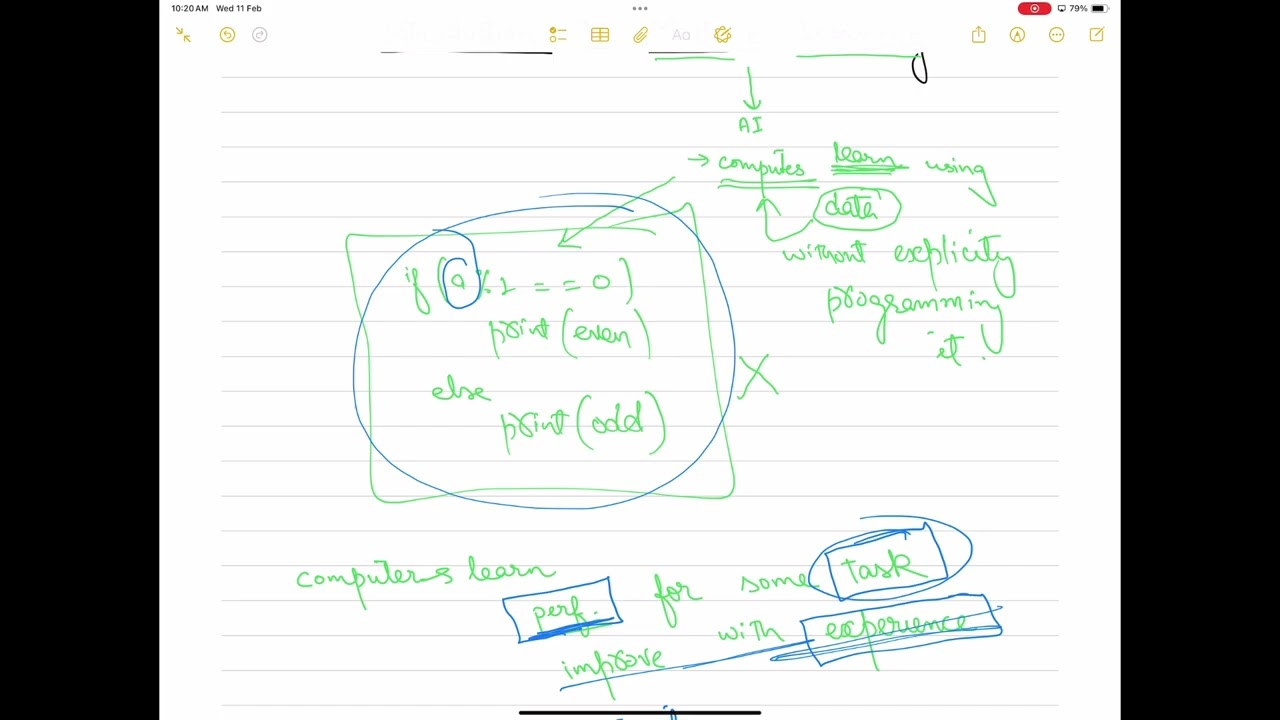 10:20 AM Wed 11 Feb
79%
Aa
AI
→ computes learn using
data
without explicity
programming
it.
if (a % 2 == 0)
print (even)
else
print (odd)
computers learn
perf. for some task
improve with experience